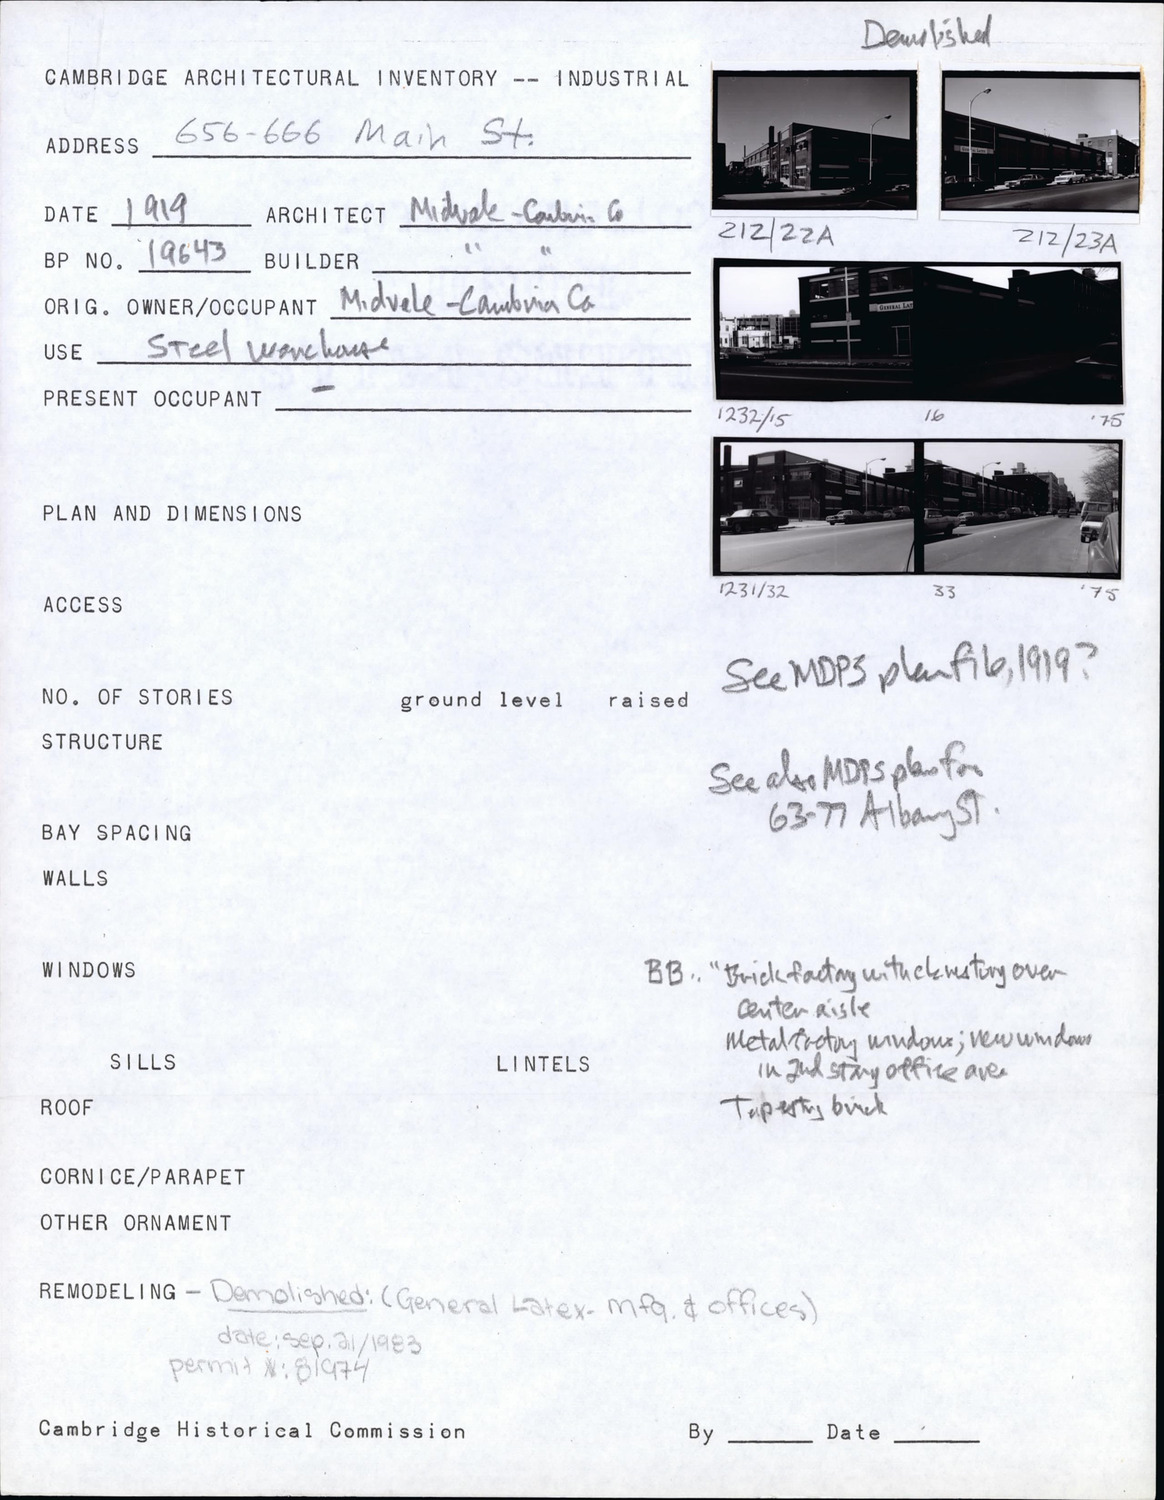 Demolished
CAMBRIDGE ARCHITECTURAL INVENTORY -- INDUSTRIAL
ADDRESS 656-666 Main St.
DATE 1919 ARCHITECT Midvale-Cambria Co
BP NO. 19643 BUILDER " "
ORIG. OWNER/OCCUPANT Midvale-Cambria Co
USE Steel warehouse
PRESENT OCCUPANT –
212/22A 212/23A
GENERAL LAT
1232/15 16 '75
1231/32 33 '75
PLAN AND DIMENSIONS
ACCESS
See MDPS plan file, 1919?
NO. OF STORIES ground level raised
STRUCTURE
See also MDPS plan for
63-77 Albany St.
BAY SPACING
WALLS
WINDOWS
BB.. "Brick factory with clerestory over
center aisle
Metal factory windows; new windows
in 2nd story office area
Tapestry brick
SILLS LINTELS
ROOF
CORNICE/PARAPET
OTHER ORNAMENT
REMODELING – Demolished: (General Latex- mfg. & offices)
date: sep. 21/1983
permit #: 81974
Cambridge Historical Commission By Date